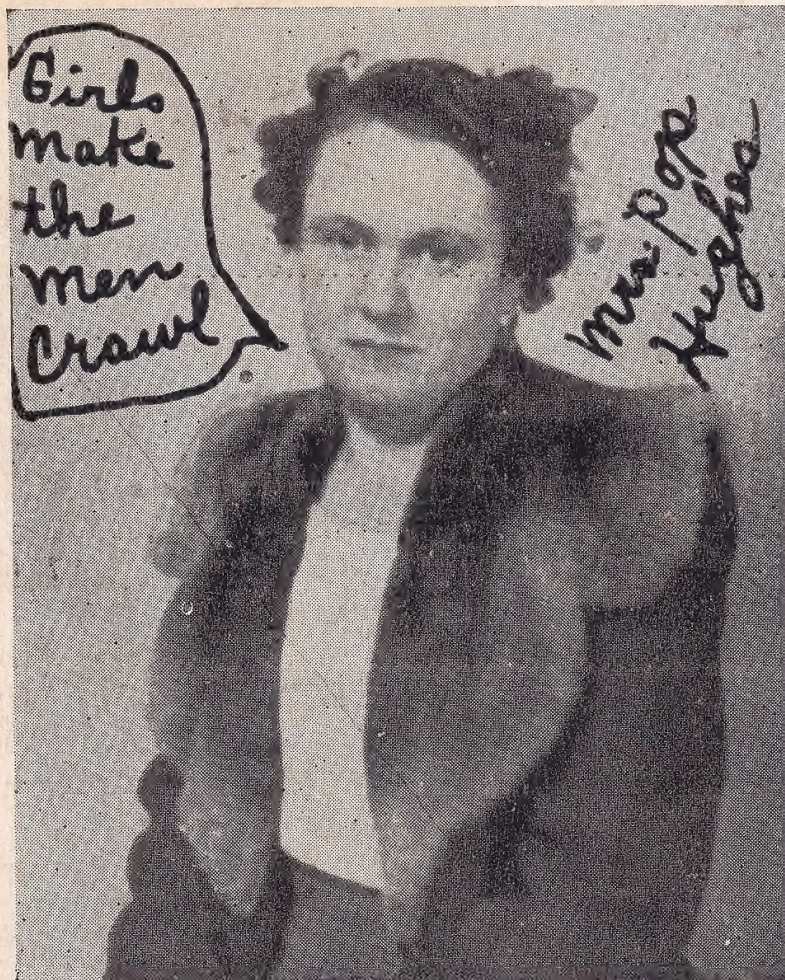 Girls
make
the
men
crawl
Mrs. Pop
Hughes